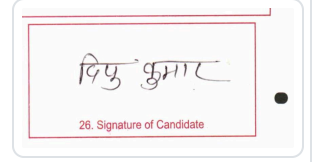 दिपु कुमार
26. Signature of Candidate